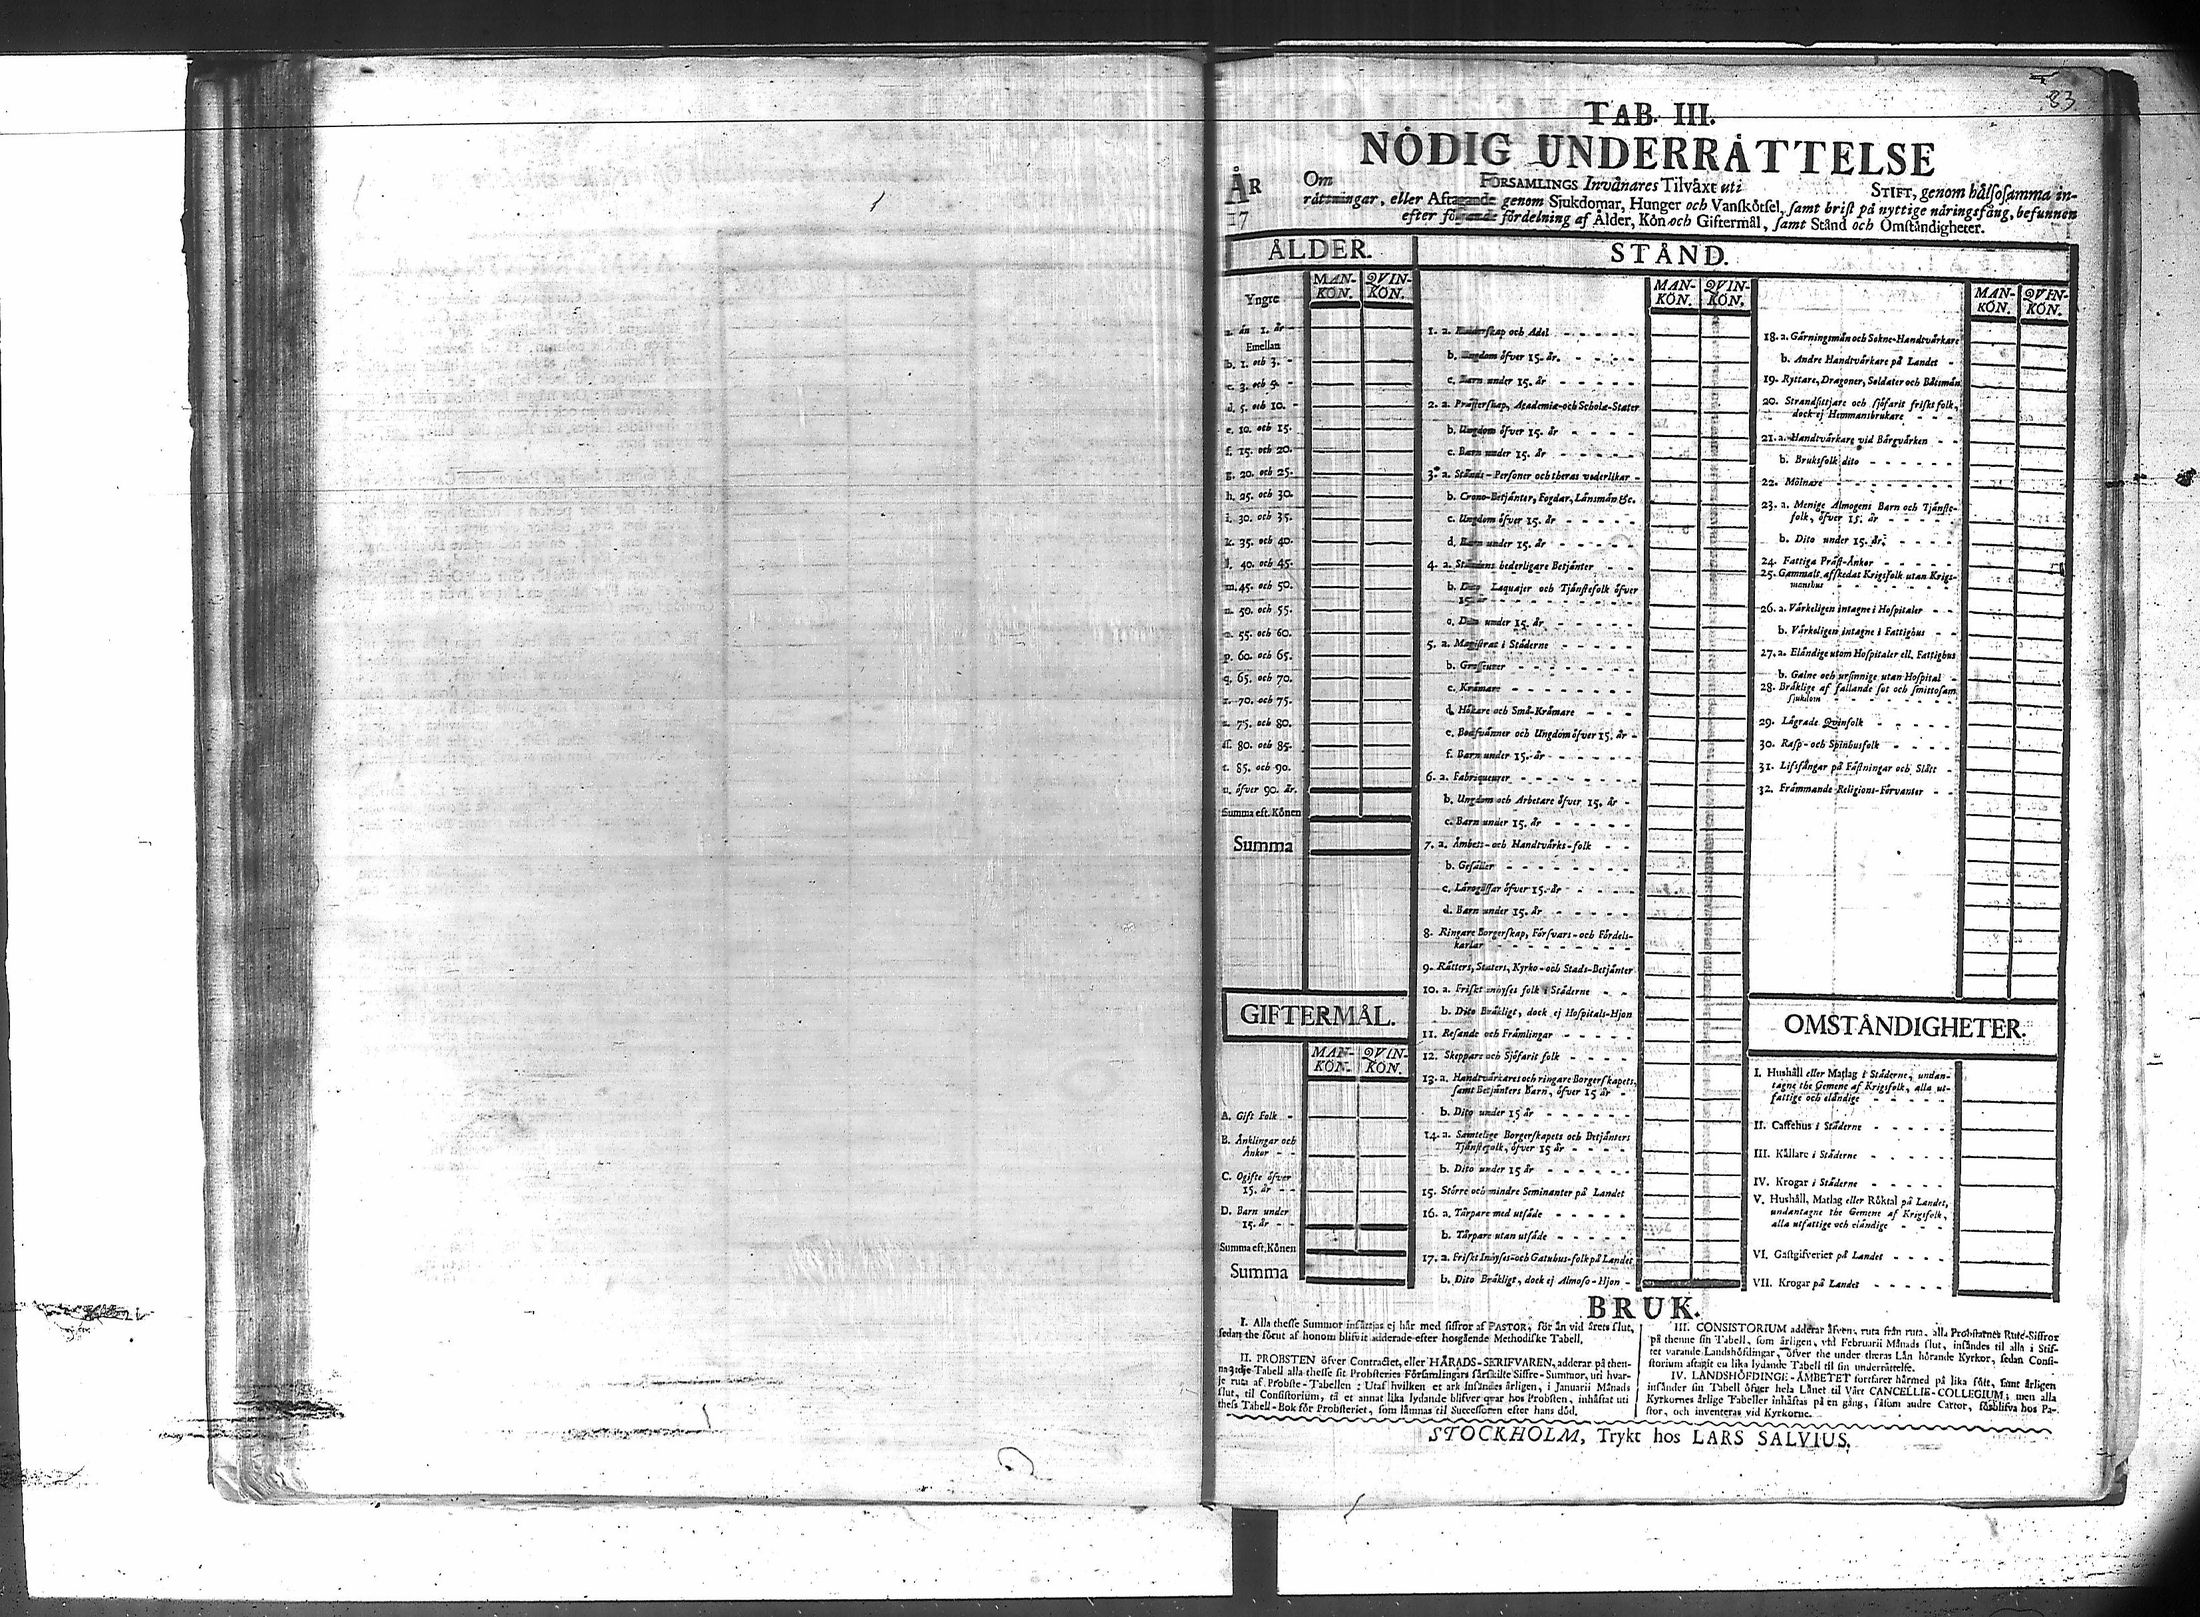 83
TAB. III.
NÖDIG UNDERRÅTTELSE
ÅR
17
Om FÖRSAMLINGS Invånares Tilvåxt uti STIFT, genom hålsosamma in-
råttningar, eller Aftagande genom Sjukdomar, Hunger och Vanskötsel, samt brist på nyttige nåringsfång, befunnen
efter följande fördelning af Ålder, Kön och Giftermål, samt Stånd och Omståndigheter.
ÅLDER.
MAN-KÖN. QVIN-KÖN.
Yngre
a. ån 1. år
Emellan
b. 1. och 3.
c. 3. och 5.
d. 5. och 10.
e. 10. och 15.
f. 15. och 20.
g. 20. och 25.
h. 25. och 30.
i. 30. och 35.
k. 35. och 40.
l. 40. och 45.
m. 45. och 50.
n. 50. och 55.
o. 55. och 60.
p. 60. och 65.
q. 65. och 70.
r. 70. och 75.
s. 75. och 80.
ss. 80. och 85.
t. 85. och 90.
u. öfver 90. år.
Summa eft. Könen
Summa
GIFTERMÅL.
MAN-KÖN. QVIN-KÖN.
A. Gift Folk
B. Ånklingar och
Ånkor
C. Ogifte öfver
15. år
D. Barn under
15. år
Summa eft. Könen
Summa
STÅND.
MAN-KÖN. QVIN-KÖN.
1. a. Ridderskap och Adel
b. Ungdom öfver 15. år.
c. Barn under 15. år
2. a. Pråsterskap, Academiæ-och Scholæ-Stater
b. Ungdom öfver 15. år
c. Barn under 15. år
3. a. Stånds-Personer och theras vederlikar
b. Crono-Betjånter, Fogdar, Lånsmån &c.
c. Ungdom öfver 15. år
d. Barn under 15. år
4. a. Ståndens hederligare Betjånter
b. Dito Laquajer och Tjånstefolk öfver
15. år
c. Dito under 15. år
5. a. Magistrat i Ståderne
b. Grosseurer
c. Kråmare
d. Hökare och Små-Kråmare
e. Bodsvånner och Ungdom öfver 15. år
f. Barn under 15. år
6. a. Fabriqueurer
b. Ungdom och Arbetare öfver 15. år
c. Barn under 15. år
7. a. Åmbets-och Handtvårks-folk
b. Gesåller
c. Lårogåssar öfver 15. år
d. Barn under 15. år
8. Ringare Borgerskap, Försvars-och Fördels-
karlar
9. Råtters, Staters, Kyrko-och Stads-Betjånter
10. a. Friskt inhyses folk i Ståderne
b. Dito Bråkligt, dock ej Hospitals-Hjon
11. Resande och Fråmlingar
12. Skeppare och Sjöfarit folk
13. a. Handtvårkares och ringare Borgerskapets,
samt Betjånters Barn, öfver 15 år
b. Dito under 15 år
14. a. Samtelige Borgerskapets och Betjånters
Tjånstefolk, öfver 15 år
b. Dito under 15 år
15. Större och mindre Seminanter på Landet
16. a. Tårpare med utsåde
b. Tårpare utan utsåde
17. a. Friskt Inhyses-och Gatuhus-folk på Landet
b. Dito Bråkligt, dock ej Almoso-Hjon
MAN-KÖN. QVIN-KÖN.
18. a. Gårningsmån och Sokne-Handtvårkare
b. Andre Handtvårkare på Landet
19. Ryttare, Dragoner, Soldater och Båtsmån
20. Strandsittjare och sjöfarit friskt folk,
dock ej Hemmansbrukare
21. a. Handtvårkare vid Bårgvårken
b. Bruksfolk dito
22. Mölnare
23. a. Menige Almogens Barn och Tjånste-
folk, öfver 15. år
b. Dito under 15. år.
24. Fattiga Pråst-Ånkor
25. Gammalt afskedat Krigsfolk utan Krigs-
manshus
26. a. Vårkeligen intagne i Hospitaler
b. Vårkeligen intagne i Fattighus
27. a. Elåndige utom Hospitaler ell. Fattighus
b. Galne och ursinnige utan Hospital
28. Bråklige af fallande sot och smittosam
sjukdom
29. Lågrade Qvinfolk
30. Rasp-och Spinhusfolk
31. Lifsfångar på Fåstningar och Slått
32. Fråmmande Religions-Förvanter
OMSTÅNDIGHETER.
I. Hushåll eller Matlag i Ståderne, undan-
tagne the Gemene af Krigsfolk, alla ut-
fattige och elåndige
II. Caffehus i Ståderne
III. Kållare i Ståderne
IV. Krogar i Ståderne
V. Hushåll, Matlag eller Röktal på Landet,
undantagne the Gemene af Krigsfolk,
alla utfattige och elåndige
VI. Gåstgifverier på Landet
VII. Krogar på Landet
BRUK.
I. Alla thesse Summor insåttjas ej hår med siffror af PASTOR, för ån vid årets slut,
sedan the förut af honom blifvit adderade efter hosgående Methodiske Tabell.
II. PROBSTEN öfver Contractet, eller HÅRADS-SKRIFVAREN, adderar på then-
na 3:dje Tabell alla thesse sit Probsteries Församlingars sårskilte Siffre-Summor, uti hvar-
je ruta af Probste-Tabellen: Utaf hvilken et ark insåndes årligen, i Januarii Månads
slut, til Consistorium, få et annat lika lydande blifver qvar hos Probsten, inhåftat uti
thess Tabell-Bok för Probsteriet, som låmnas til Successoren efter hans död.
III. CONSISTORIUM adderar åfven, ruta från ruta, alla Probstarnes Rute-Siffror
på thenne sin Tabell, som årligen, vid Februarii Månads slut, insåndes til alla i Stif-
tet varande Landshöfdingar, öfver the under theras Lån hörande Kyrkor, sedan Consi-
storium aftagit en lika lydande Tabell til sin underråttelse.
IV. LANDSHÖFDINGE-ÅMBETET fortfarer hårmed på lika sått, samt årligen
insånder sin Tabell öfver hela Lånet til Vårt CANCELLIE-COLLEGIUM; men alla
Kyrkornes årlige Tabeller inhåftas på en gång, såsom andre Cartor, blifva hos Pa-
stor, och inventeras vid Kyrkorne.
STOCKHOLM, Trykt hos LARS SALVIUS.